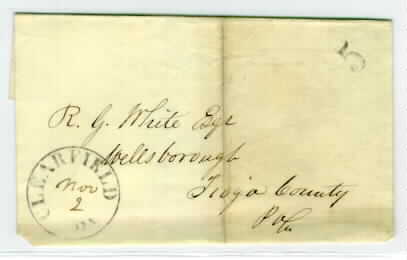 5
R. G. White Esqr
Wellsborough
Tioga County
Pa
CLEARFIELD
Nov
2
PA